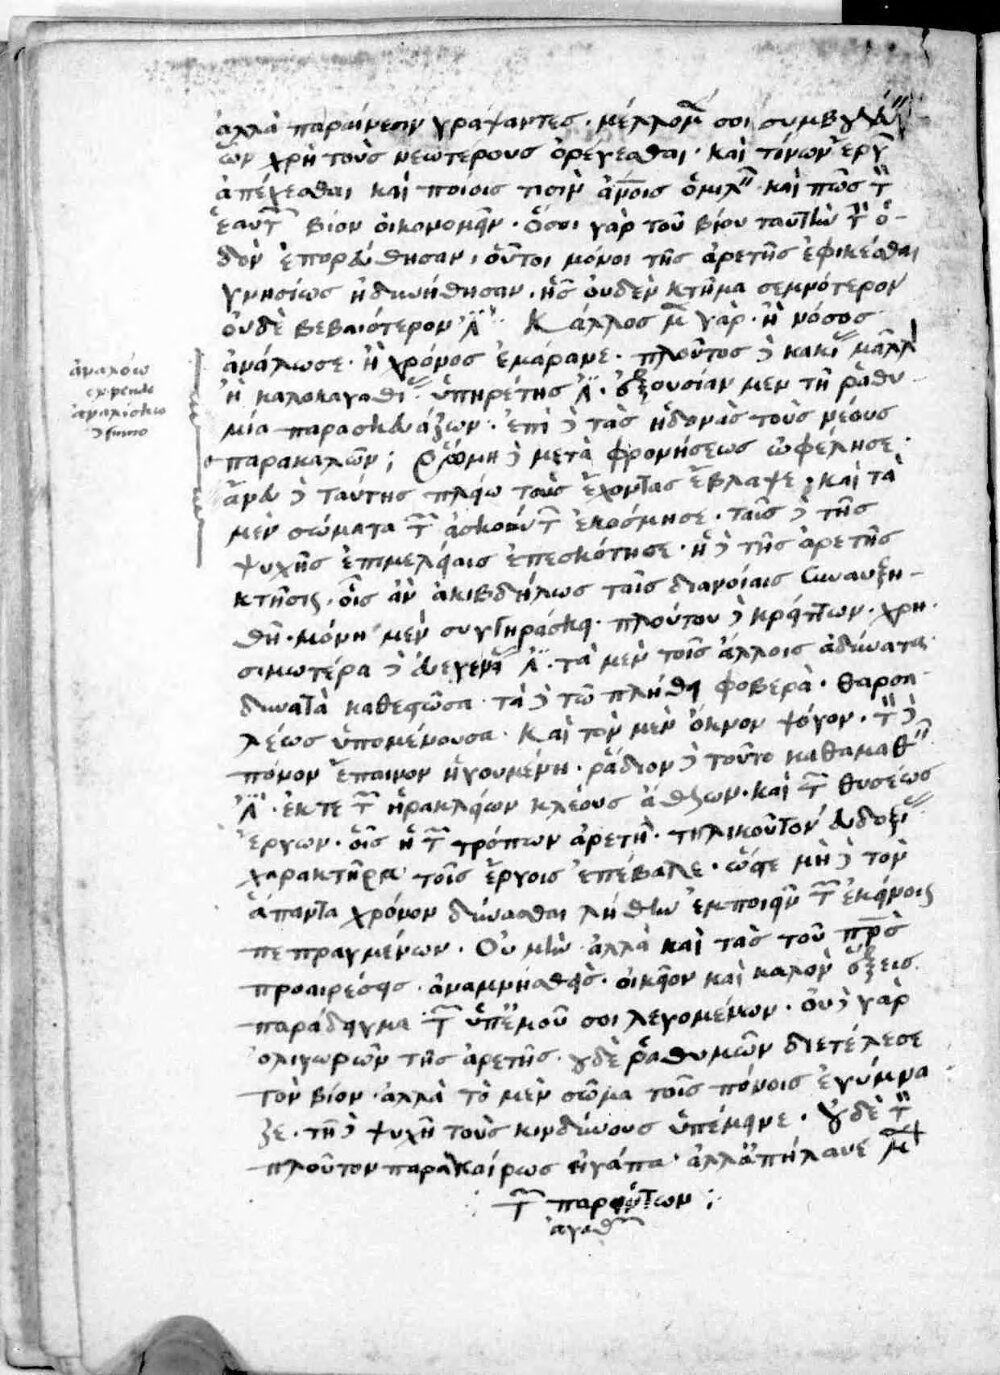 ἀλλὰ παραίνεσιν γράψαντες · μέλλομ̃ σοι συμβουλεύ
ὧν χρὴ τοὺς νεωτέρους ὀρέγεσθαι · καὶ τίνων ἔργ
ἀπέχεσθαι καὶ ποίοις τισὶν ἀνοις ὁμιλ · καὶ πῶς τ
ἑαυτ βίον οἰκονομεῖν · ὅσοι γὰρ τοῦ βίου ταύτην τ ὁ-
δὸν ἐπορεύθησαν · οὗτοι μόνοι τῆς ἀρετῆς ἐφικέσθαι
γνησίως ἠδυνήθησαν · ἧς οὐδὲν κτῆμα σεμνότερον
οὐδὲ βεβαιότερον · Κάλλος μ γὰρ · ἢ νόσος
ἀνάλωσε · ἢ χρόνος ἐμάρανε · πλοῦτος κακί μᾶλλ
ἢ καλοκαγαθί ὑπηρέτης · ἐξουσίαν μεν τῇ ῥαθυ-
μία παρασκευάζων · ἐπὶ τὰς ἡδονὰς τοὺς νέους
παρακαλῶν ; ῥώμη μετὰ φρονήσεως ὠφέλησε ·
ἄνευ ταύτης πλείω τοὺς ἔχοντας ἔβλαψε · καὶ τὰ
μὲν σώματα τ ἀσκούντ ἐκόσμησε · ταῖς τῆς
ψυχῆς ἐπιμελείαις ἐπεσκότησε · ἡ τῆς ἀρετῆς
κτῆσις · οἷς ἂν ἀκιβδήλως ταῖς διανοίαις συναυξη-
θῆ · μόνη μὲν συγγηράσκει · πλούτου κρείττων · χρη-
σιμωτέρα εὐγενεί · τὰ μὲν τοῖς ἄλλοις ἀδύνατα
δυνατὰ καθεστῶσα · τὰ τῶ πλήθει φοβερὰ · θαρσα-
λέως ὑπομένουσα · Καὶ τὸν μὲν ὄκνον ψόγον · τ
πόνον ἔπαινον ἡγουμένη · ῥάδιον τοῦτο καθαμαθ
ἐκ τε τ ἡρακλείων κλέους ἄθλων · καὶ τ θυσέως
ἔργων · οἷς ἡ τ τρόπων ἀρετὴ · τηλικοῦτον εὐδοξί
χαρακτῆρα τοῖς ἔργοις ἐπέβαλε · ὥστε μὴ τὸν
ἅπαντα χρόνον δύνασθαι λήθην ἐμποιεῖν τ ἐκείνοις
πεπραγμένων · Οὐ μὴν ἀλλὰ καὶ τὰς τοῦ πρς
προαιρέσεις · ἀναμνησθεὶς · οἰκεῖον καὶ καλὸν ἕξεις
παράδειγμα τ ὑπ' ἐμοῦ σοι λεγομένων · οὐ γὰρ
ὀλιγωρῶν τῆς ἀρετῆς · οὐδὲ ῥαθυμῶν διετέλεσε
τὸν βίον · ἀλλὰ τὸ μὲν σῶμα τοῖς πόνοις ἐγύμνα
ζε · τῇ ψυχῆ τοὺς κινδύνους ὑπέμεινε · οὐδὲ τ
πλοῦτον παρακαίρως ἠγάπα · ἀλλ' ἀπήλαυε μ
τ παρόντων ;
ἀγαθ
ἀναλόω
expende
ἀναλίσκω